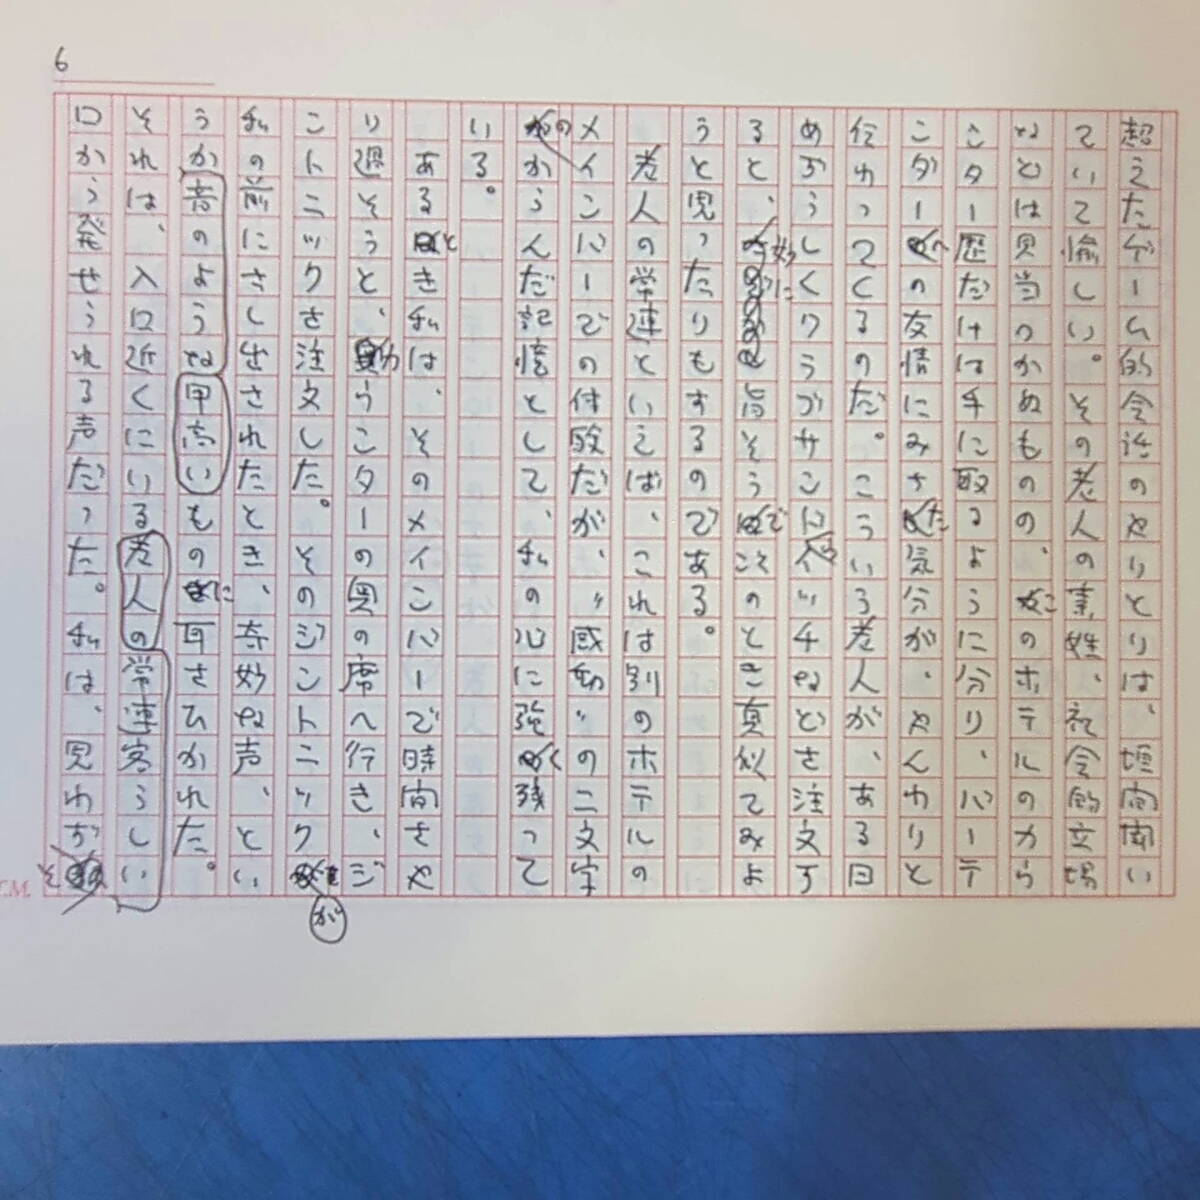 6
超えたゲーム的会話のやりとりは、垣間聞い
ていて愉しい。その老人の素姓、社会的立場
などは見当のつかぬものの、このホテルのカウ
ンター歴だけは手に取るように分り、バーテ
ンダーへの友情にみちた気分が、やんわりと
伝わってくるのだ。こういう老人が、ある日
めずらしくクラブサンドイッチなどを注文す
ると、妙に旨そうでそのとき真似てみよ
うと思ったりもするのである。
老人の常連といえば、これは別のホテルの
メインバーでのだが、〃感動〃の二文字
のからんだ記憶として、私の心に強く残って
いる。
あるとき私は、そのメインバーで時間をや
り過そうと、カウンターの奥の席へ行き、ジ
ントニックを注文した。そのジントニックが
私の前にさし出されたとき、奇妙な声、とい
うか音のような甲高いものに耳をひかれた。
それは、入口近くにいる老人の常連客らしい
口から発せられる声だった。私は、思わずそ